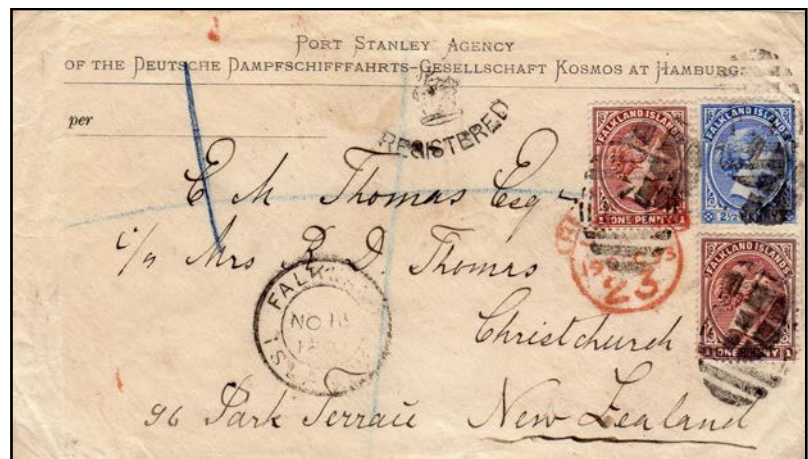 PORT STANLEY AGENCY
OF THE DEUTSCHE DAMPFSCHIFFFAHRTS-GESELLSCHAFT KOSMOS AT HAMBURG.
per
REGISTERED
FALKLAND ISLANDS
ONE PENNY
FALKLAND ISLANDS
2½
FALKLAND ISLANDS
ONE PENNY
E M Thomas Esq
c/o Mrs R D. Thomas
Christchurch
96 Park Terrace New Zealand
NO 18
23